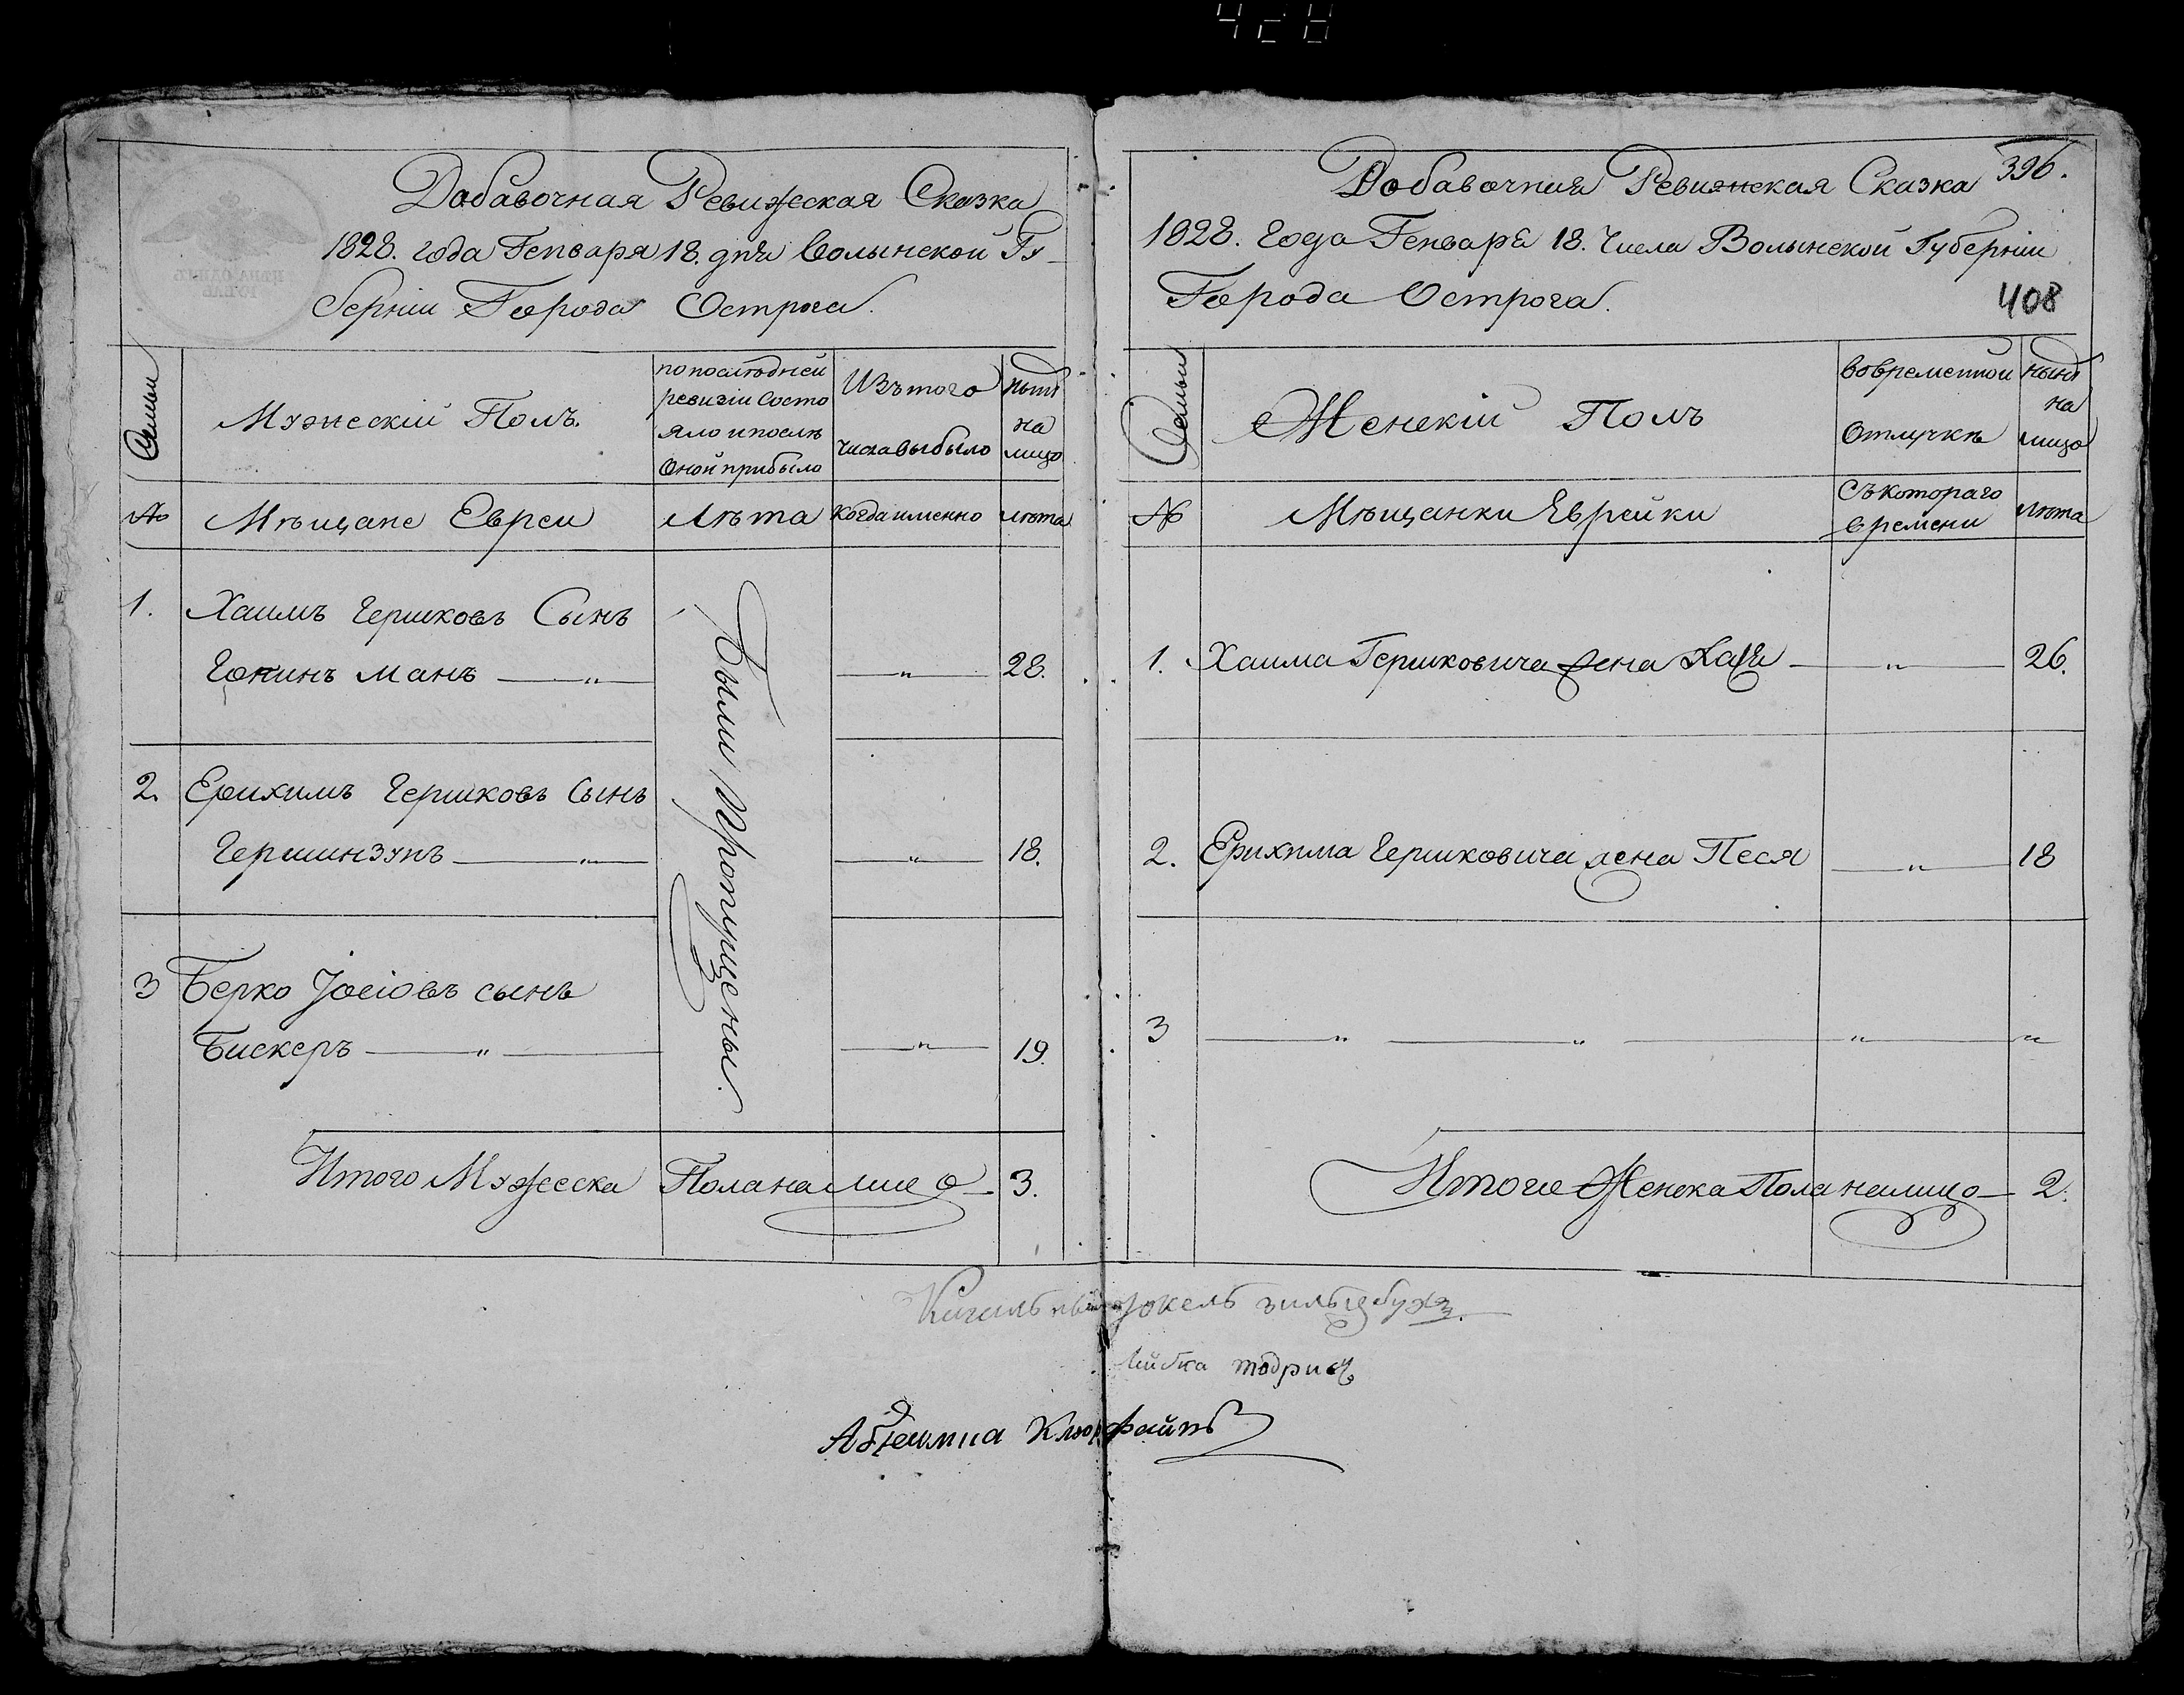 428
Добавочная Ревижская Сказка
1828. года Генваря 18. дня Волынской Гу-
берніи Города Острога.
Семьи
Мужескій Полъ.
по последней
ревизіи состо
яло и после
оной прибыло
Изъ того
числа выбыло
ныне
на
лицо
№
Мѣщане Евреи
Лѣта
когда именно
лѣта
1.
Хаимъ Гершковъ Сынъ
манъ — „ —
— „ —
28.
2.
Ерихимъ Гершковъ Сынъ
Гершинзунъ — „ —
— „ —
18.
3
Берко Јосіовъ сынъ
Бискеръ — „ —
— „ —
19.
Были Пропущены.
Итого Мужеска Пола на лицо — 3.
396.
Добавочная Ревижская Сказка
1828. Года Генваря 18. Числа Волынской Губерніи
Города Острога.
408
Семьи
Женскій Полъ
во временной
Отлучкѣ
ныне
на
лицо
№
Мѣщанки Еврейки
Съ котораго
времени
лѣта
1. Хаима Гершковича жена Хая — „ — 26.
2. Ерихима Гершковича жена Песя — „ — 18
3 — „ — „ — „ — „
Итого Женска Пола налицо — 2.
Іокель
Лейбка тодрис